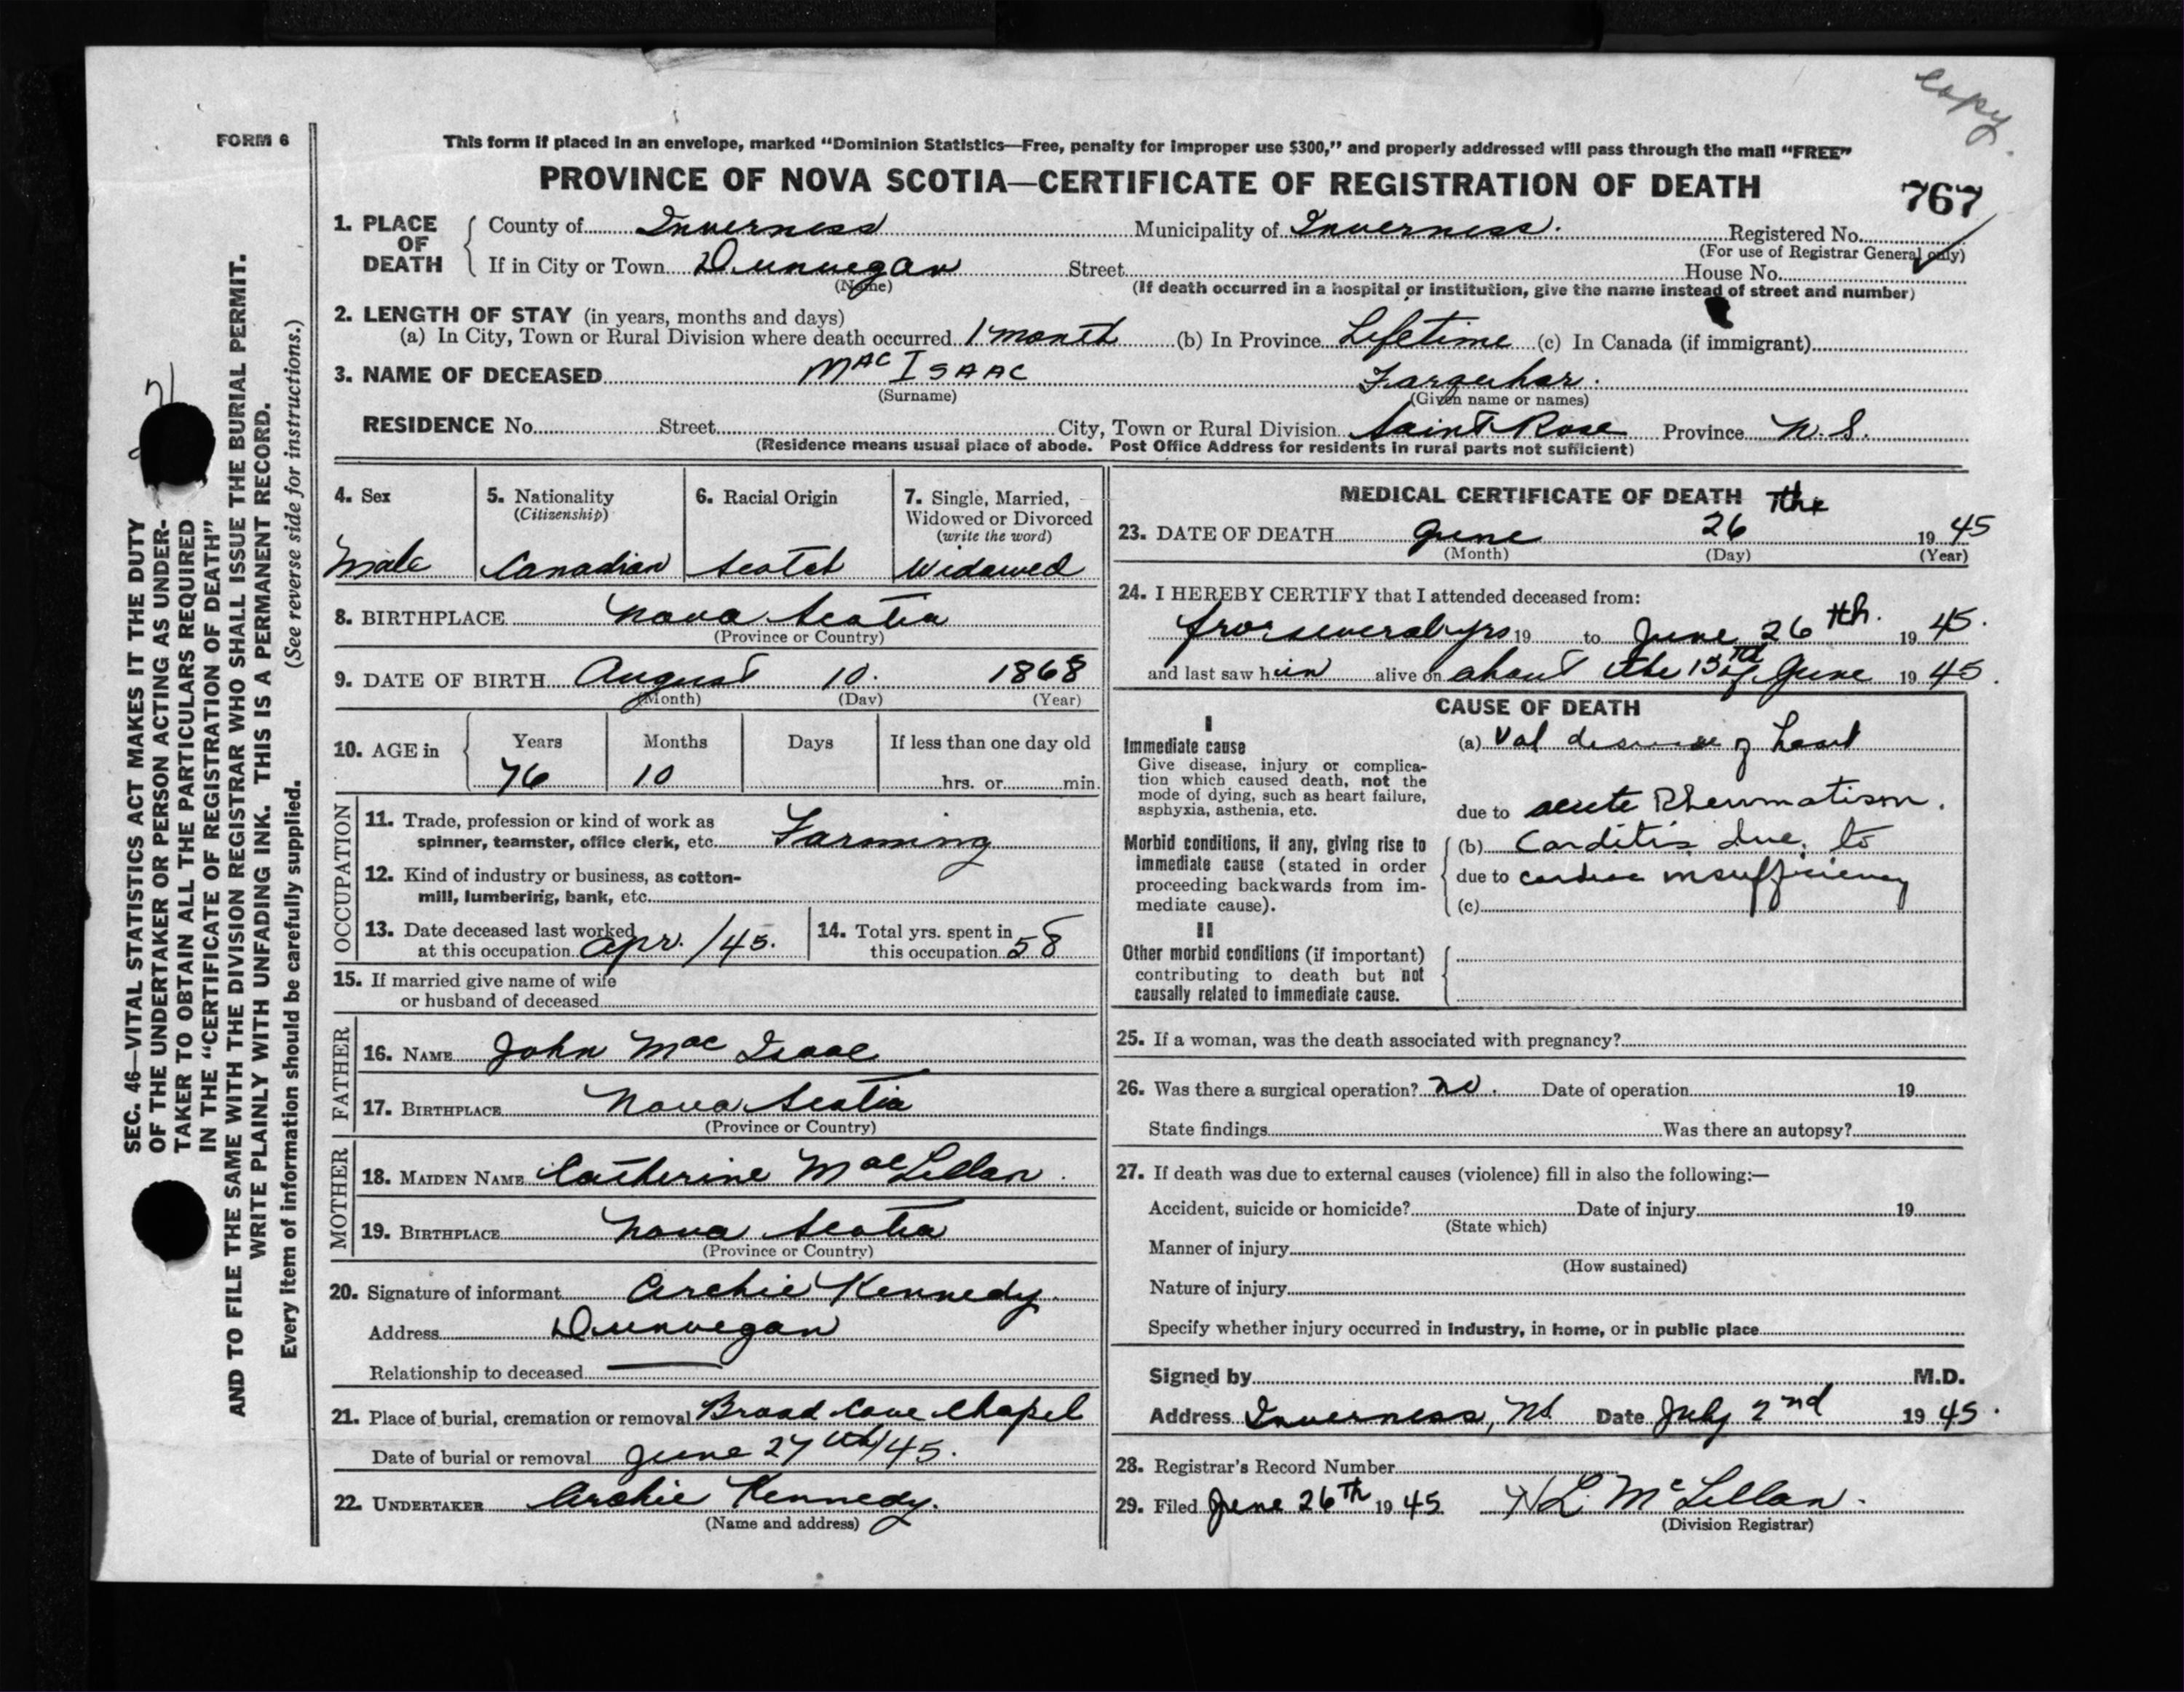 copy.
FORM 6
This form if placed in an envelope, marked “Dominion Statistics—Free, penalty for improper use $300,” and properly addressed will pass through the mail “FREE”
PROVINCE OF NOVA SCOTIA—CERTIFICATE OF REGISTRATION OF DEATH
767
1. PLACE OF DEATH
County of Inverness Municipality of Inverness. Registered No.
(For use of Registrar General only)
If in City or Town Dunvegan Street House No.
(Name) (If death occurred in a hospital or institution, give the name instead of street and number)
2. LENGTH OF STAY (in years, months and days)
(a) In City, Town or Rural Division where death occurred 1 month (b) In Province Lifetime (c) In Canada (if immigrant)
3. NAME OF DECEASED MacIsaac Farquhar.
(Surname) (Given name or names)
RESIDENCE No. Street City, Town or Rural Division Saint Rose Province N.S.
(Residence means usual place of abode. Post Office Address for residents in rural parts not sufficient)
4. Sex
Male
5. Nationality
(Citizenship)
Canadian
6. Racial Origin
Scotch
7. Single, Married,
Widowed or Divorced
(write the word)
Widowed
8. BIRTHPLACE Nova Scotia
(Province or Country)
9. DATE OF BIRTH August 10. 1868
(Month) (Day) (Year)
10. AGE in
Years Months Days If less than one day old
76 10 hrs. or min.
OCCUPATION
11. Trade, profession or kind of work as
spinner, teamster, office clerk, etc. Farming
12. Kind of industry or business, as cotton-
mill, lumbering, bank, etc.
13. Date deceased last worked
at this occupation Apr. /45.
14. Total yrs. spent in
this occupation 58
15. If married give name of wife
or husband of deceased
FATHER
16. NAME John Mac Isaac
17. BIRTHPLACE Nova Scotia
(Province or Country)
MOTHER
18. MAIDEN NAME Catherine MacLellan.
19. BIRTHPLACE Nova Scotia
(Province or Country)
20. Signature of informant Archie Kennedy.
Address Dunvegan
Relationship to deceased
21. Place of burial, cremation or removal Broad Cove Chapel
Date of burial or removal June 27th/45.
22. UNDERTAKER Archie Kennedy.
(Name and address)
MEDICAL CERTIFICATE OF DEATH
23. DATE OF DEATH June 26 1945
(Month) (Day) (Year)
24. I HEREBY CERTIFY that I attended deceased from:
for several yrs 19 to June 26th. 1945.
and last saw him alive on about the 15th of June 1945.
CAUSE OF DEATH
I
Immediate cause
Give disease, injury or complica-
tion which caused death, not the
mode of dying, such as heart failure,
asphyxia, asthenia, etc.
(a) Val disease of heart
due to acute Rheumatism.
Morbid conditions, if any, giving rise to
immediate cause (stated in order
proceeding backwards from im-
mediate cause).
(b) Carditis due. to
due to cardiac insufficiency
(c)
II
Other morbid conditions (if important)
contributing to death but not
causally related to immediate cause.
25. If a woman, was the death associated with pregnancy?
26. Was there a surgical operation? no. Date of operation 19
State findings Was there an autopsy?
27. If death was due to external causes (violence) fill in also the following:—
Accident, suicide or homicide? Date of injury 19
(State which)
Manner of injury
(How sustained)
Nature of injury
Specify whether injury occurred in industry, in home, or in public place
Signed by M.D.
Address Inverness, NS Date July 2nd 1945.
28. Registrar's Record Number
29. Filed June 26Th 1945 L. McLellan.
(Division Registrar)
SEC. 46—VITAL STATISTICS ACT MAKES IT THE DUTY
OF THE UNDERTAKER OR PERSON ACTING AS UNDER-
TAKER TO OBTAIN ALL THE PARTICULARS REQUIRED
IN THE “CERTIFICATE OF REGISTRATION OF DEATH”
AND TO FILE THE SAME WITH THE DIVISION REGISTRAR WHO SHALL ISSUE THE BURIAL PERMIT.
WRITE PLAINLY WITH UNFADING INK. THIS IS A PERMANENT RECORD.
Every item of information should be carefully supplied. (See reverse side for instructions.)